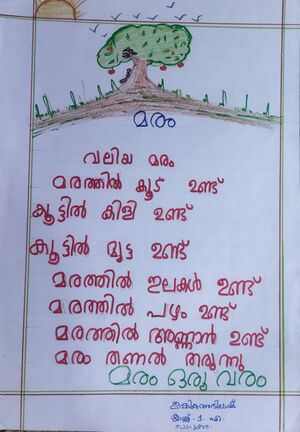 മരം
വലിയ മരം
മരത്തിൽ കൂട് ഉണ്ട്
കൂട്ടിൽ കിളി ഉണ്ട്
കൂട്ടിൽ മുട്ട ഉണ്ട്
മരത്തിൽ ഇലകൾ ഉണ്ട്
മരത്തിൽ പഴം ഉണ്ട്
മരത്തിൽ അണ്ണാൻ ഉണ്ട്
മരം തണൽ തരുന്നു
മരം ഒരു വരം